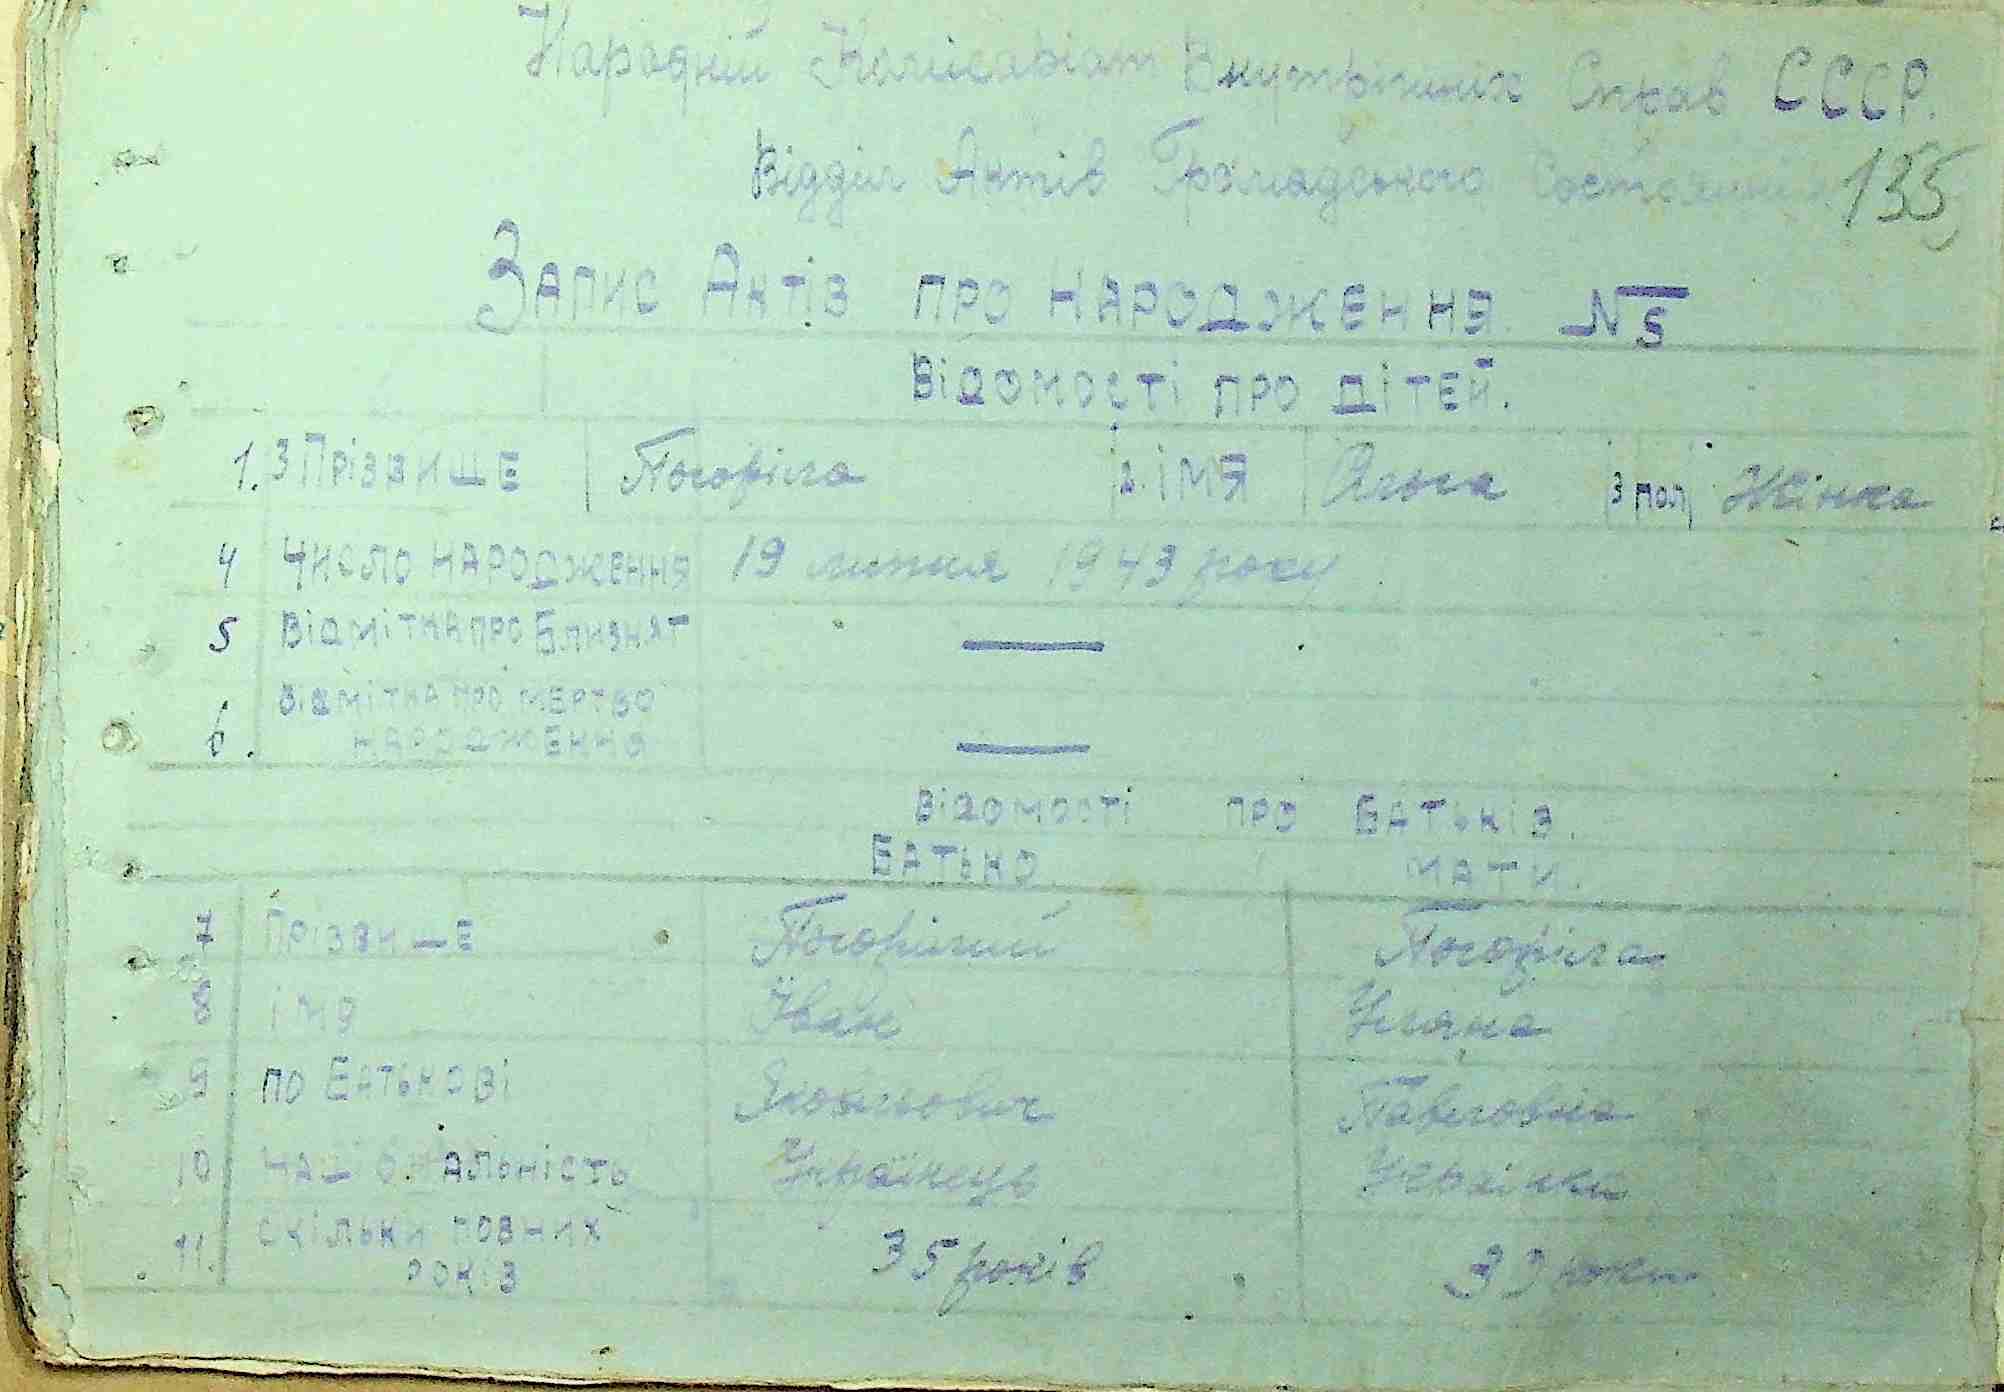 Народній Комісаріат Внутрішніх Справ СССР.
Відділ Актів Громадського Состояния 135
Запис Актів про народження № 5
Відомості про дітей.
1. Прізвище Погоріла 2. імя Ольга 3 пол Жінка
4 Число народження 19 липня 1943 року
5 Відмітка про Близнят —
6. Відмітка про мертво
народження —
Відомості про батьків.
Батько Мати.
7 Прізвище Погорілий Погоріла
8 імя Іван Уляна
9 по Батькові Якович Павловна
10 Націона альність Українець Українка
11. скільки повних 35 років
років